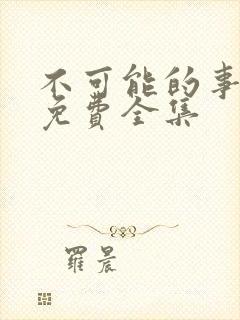 不可能的事
免費全集
羅晨